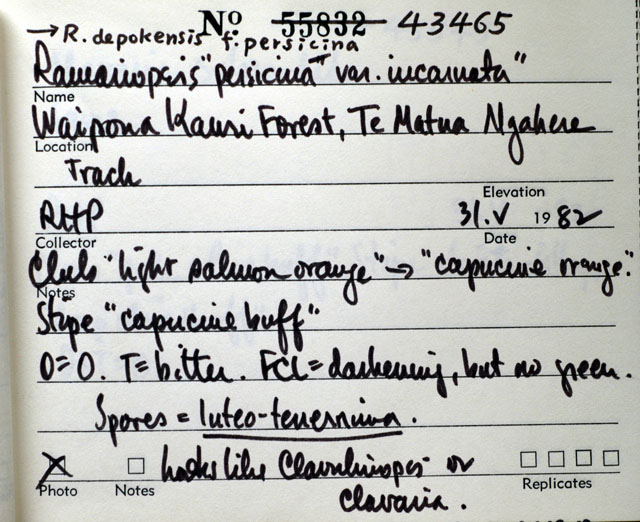 No 55832 43465
→ R. depokensis f. persicina
Ramariopsis "persicina" var. incarnata"
Name
Waipoua Kauri Forest, Te Matua Ngahere
Location
Track
Elevation
RHP 31.V 1982
Collector Date
Club "light salmon orange" → "capucine orange."
Notes
Stipe "capucine buff"
O=O. T=bitter. FCL=darkening, but no green.
Spores = luteo-tenerrima.
Photo Notes looks like Clavulinopsis or Replicates
Clavaria.